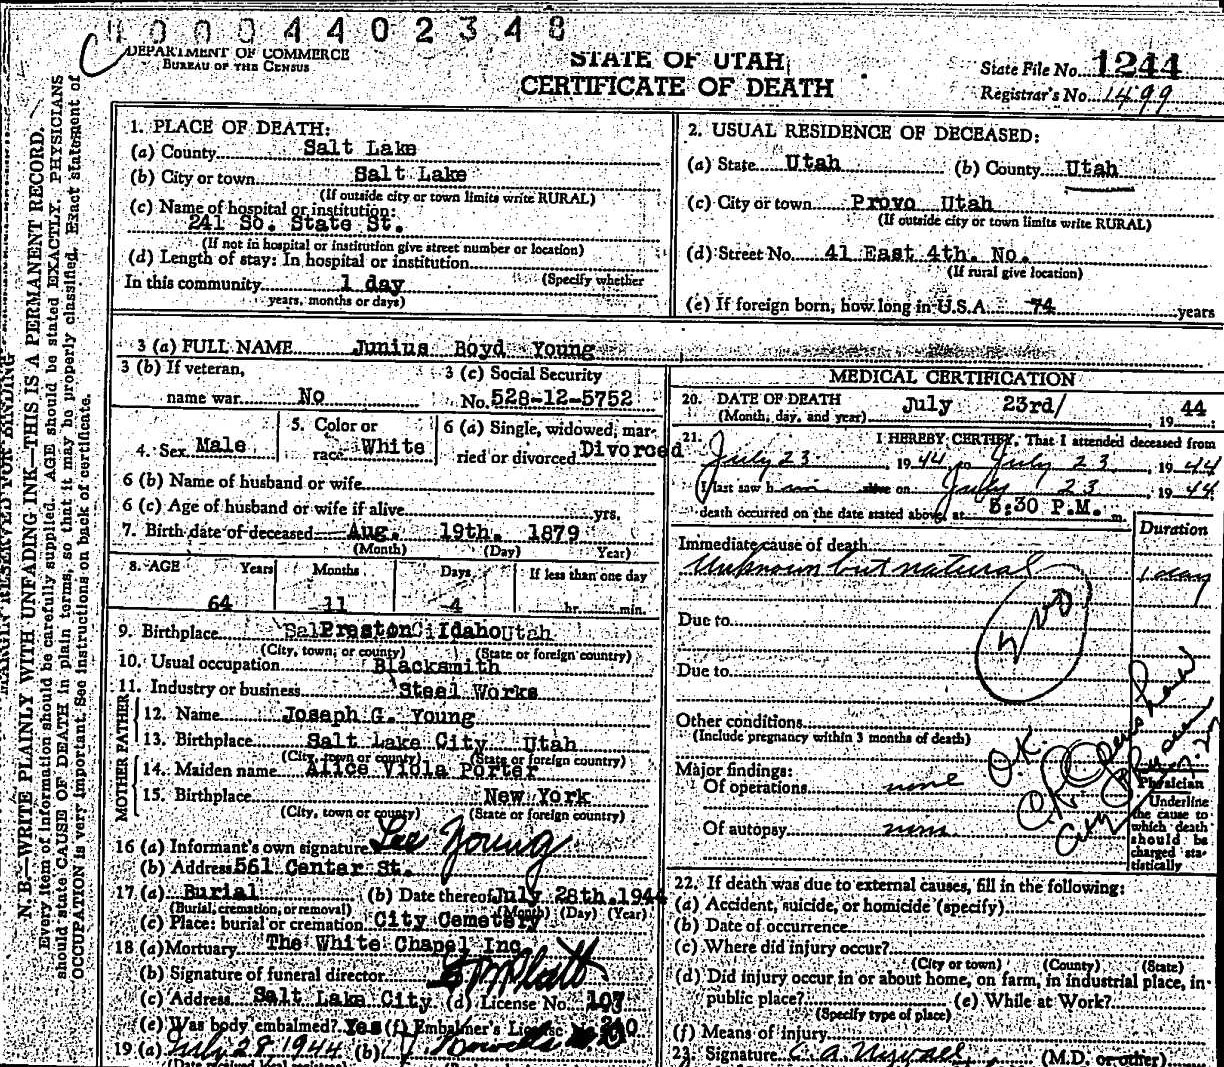 0 0 0 4 4 0 2 3 4 8
DEPARTMENT OF COMMERCE
BUREAU OF THE CENSUS
STATE OF UTAH
CERTIFICATE OF DEATH
State File No. 1244
Registrar's No. 1499
MARGIN RESERVED FOR BINDING
N. B.—WRITE PLAINLY WITH UNFADING INK—THIS IS A PERMANENT RECORD.
Every item of information should be carefully supplied. AGE should be stated EXACTLY. PHYSICIANS
should state CAUSE OF DEATH in plain terms, so that it may be properly classified. Exact statement of
OCCUPATION is very important. See instructions on back of certificate.
1. PLACE OF DEATH:
(a) County Salt Lake
(b) City or town Salt Lake
(If outside city or town limits write RURAL)
(c) Name of hospital or institution:
241 So. State St.
(If not in hospital or institution give street number or location)
(d) Length of stay: In hospital or institution
(Specify whether
In this community 1 day
years, months or days)
2. USUAL RESIDENCE OF DECEASED:
(a) State Utah (b) County Utah
(c) City or town Provo Utah
(If outside city or town limits write RURAL)
(d) Street No. 41 East 4th. No.
(If rural give location)
(e) If foreign born, how long in U.S.A. 74 years
3 (a) FULL NAME Junius Boyd Young
3 (b) If veteran,
name war No
3 (c) Social Security
No. 528-12-5752
4. Sex Male
5. Color or
race White
6 (a) Single, widowed, mar-
ried or divorced Divorced
6 (b) Name of husband or wife
6 (c) Age of husband or wife if alive yrs.
7. Birth date of deceased Aug. 19th. 1879
(Month) (Day) Year)
8. AGE Years Months Days If less than one day
64 11 4 hr. min.
9. Birthplace Preston Idaho Utah
(City, town, or county) (State or foreign country)
10. Usual occupation Blacksmith
11. Industry or business Steel Works
FATHER
12. Name Joseph G. Young
13. Birthplace Salt Lake City Utah
(City, town or county) (State or foreign country)
MOTHER
14. Maiden name Alice Viola Porter
15. Birthplace New York
(City, town or county) (State or foreign country)
16 (a) Informant's own signature Lee Young
(b) Address 561 Center St.
17 (a) Burial (b) Date thereof July 28th. 1944
(Burial, cremation, or removal) (Month) (Day) (Year)
(c) Place: burial or cremation City Cemetery
18 (a) Mortuary The White Chapel Inc
(b) Signature of funeral director
(c) Address Salt Lake City (d) License No. 107
(e) Was body embalmed? Yes (f) Embalmer's License
19 (a) July 28, 1944 (b)
MEDICAL CERTIFICATION
20. DATE OF DEATH
(Month, day, and year) July 23rd/ , 19 44
21. I HEREBY CERTIFY, That I attended deceased from
July 23 , 19 44 to July 23 , 19 44
I last saw him alive on July 23 , 19 44
death occurred on the date stated above, at 5:30 P.M. m.
Duration
Immediate cause of death
Unknown but natural 1 day
Due to
Due to
Other conditions
(Include pregnancy within 3 months of death)
Major findings:
Of operations none
Of autopsy none
O.K.
City
Physician
Underline
the cause to
which death
should be
charged sta-
tistically
22. If death was due to external causes, fill in the following:
(a) Accident, suicide, or homicide (specify)
(b) Date of occurrence
(c) Where did injury occur?
(City or town) (County) (State)
(d) Did injury occur in or about home, on farm, in industrial place, in
public place? (e) While at Work?
(Specify type of place)
(f) Means of injury
23. Signature (M.D. or other)